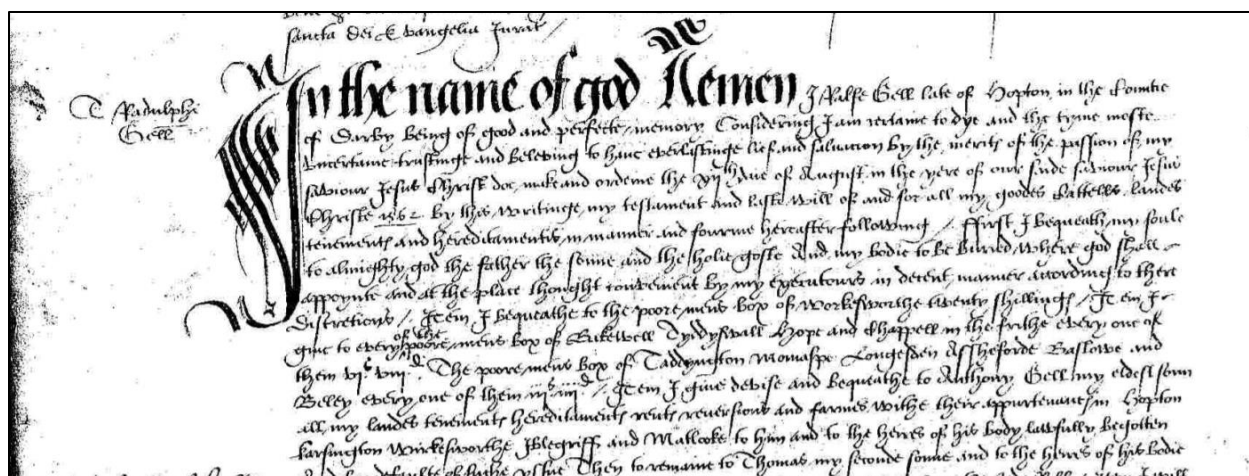 sancta dei Evangelia Jurat
T Radulphi
Gell
In the name of god Aemen I Ralfe Gell late of Hopton in the Countie
of Darby being of good and perfecte memory Considering I am certaine to dye and the tyme moste
uncertaine trustinge and beleving to have everlastinge lief and salvacion by the merits of the passion of my
saviour Jesus Christ doe make and ordeine the daie of August in the yere of our saide saviour Jesus
Christe by this writinge my testament and laste will of and for all my goodes cattells landes
tenements and hereditaments in manner and fourme hereafter following / ffirst I bequeath my soule
to almighty god the father the sonne and the holie goste And my bodie to be buried where god shall
appoynte and at the place thought convenient by my executours in decent manner according to there
discretions / Item I bequeathe to the poore mens box of Workesworthe twenty shillings / Item I
give to every of the poore mens box of Bakewell Tyddyswall Hope and Chappell in the frithe every one of
them vis viiid. The poore mens box of Taddyngton Longesden Assheforde Baslowe and
Beley every one of them iiis iiiid / Item I give devise and bequeathe to Anthony Gell my eldest sonn
all my landes tenements hereditaments rents reversions and farmes withe their appurtenances in Hopton
Karsington Wirkesworthe Iblegriff and Matlocke to him and to the heires of his body lawfully begotten
And for defaulte of suche yssue Then to remaine to Thomas my seconde sonne and to the heires of his bodie